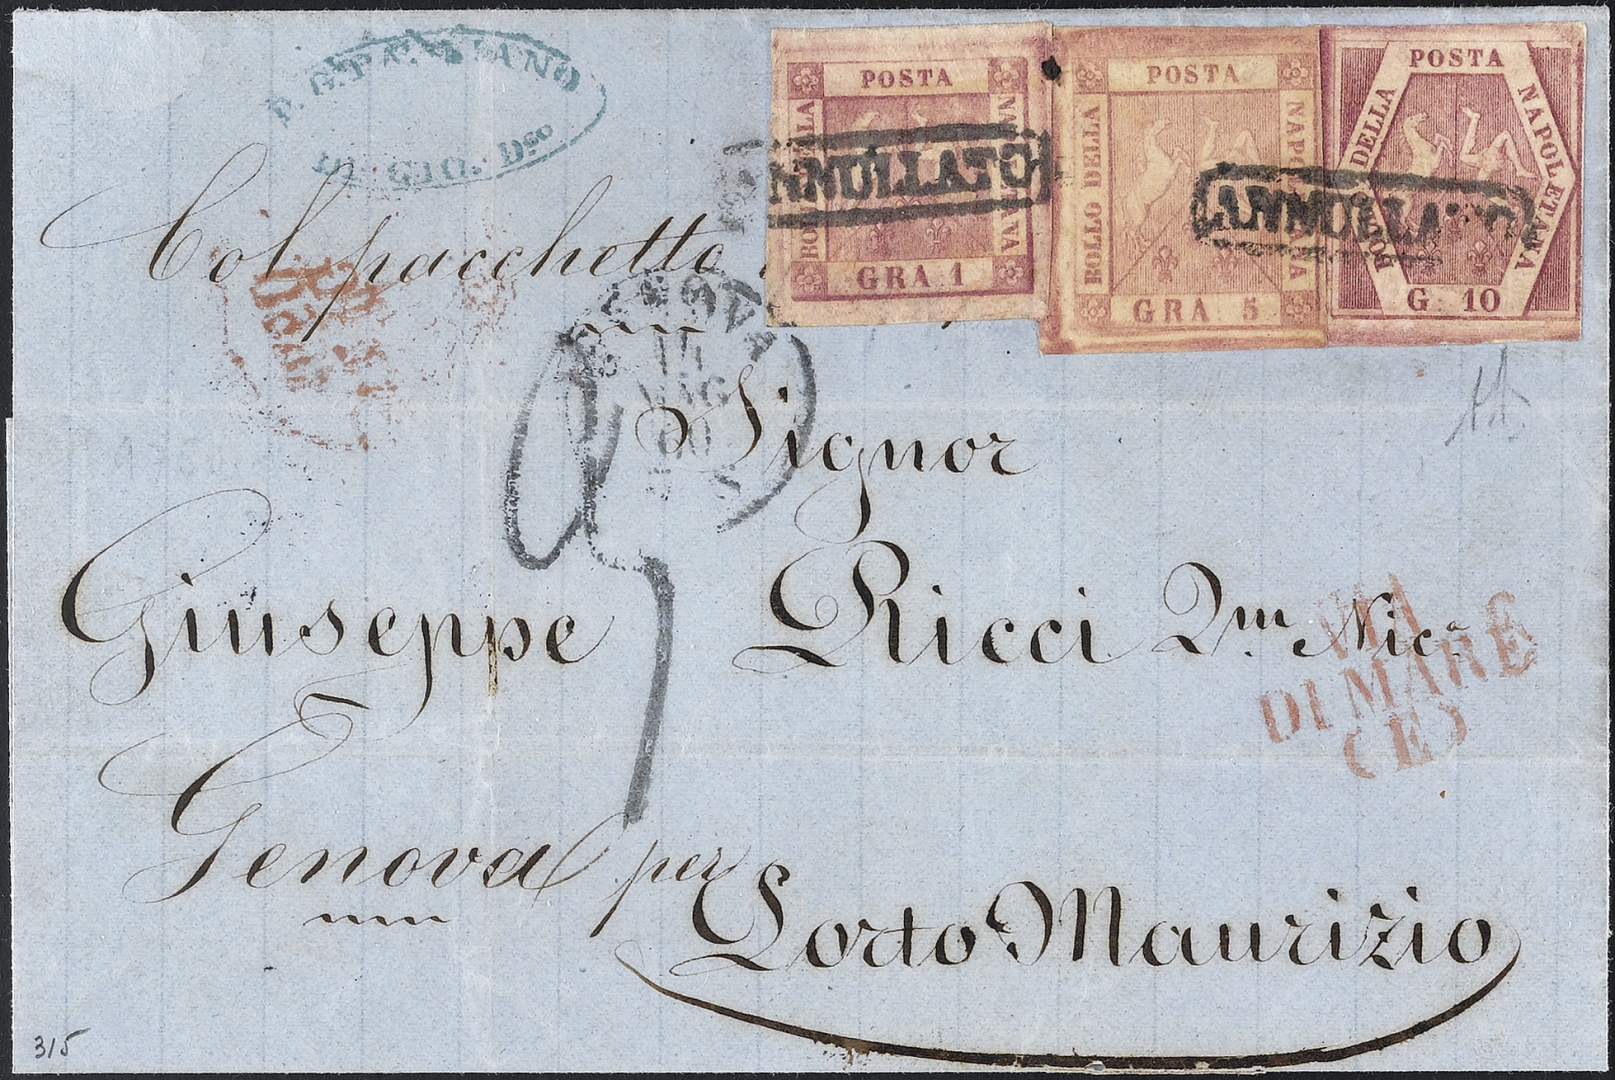 DI GIO. Dco
Col pacchetto
POSTA
BOLLO DELLA
NAPOLETANA
GRA 1
ANNULLATO
POSTA
BOLLO DELLA
NAPOLETANA
GRA 5
ANNULLATO
POSTA
BOLLO DELLA
NAPOLETANA
G. 10
GENOVA
MAG
60
Signor
Giuseppe Ricci Qm. Nica
VIA
DI MARE
(E)
Genova per
Porto Maurizio
315